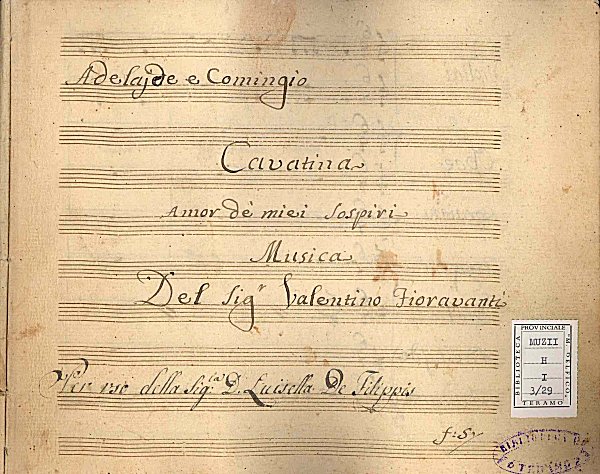 Adelajde e Comingio
Cavatina
Amor dè miei Sospiri
Musica
Del Sigr Valentino Fioravanti
Per uso della Sig.a D. Luisella De Filippis
BIBLIOTECA
PROVINCIALE
"M. DELFICO"
TERAMO
MUZII
H
I
3/29